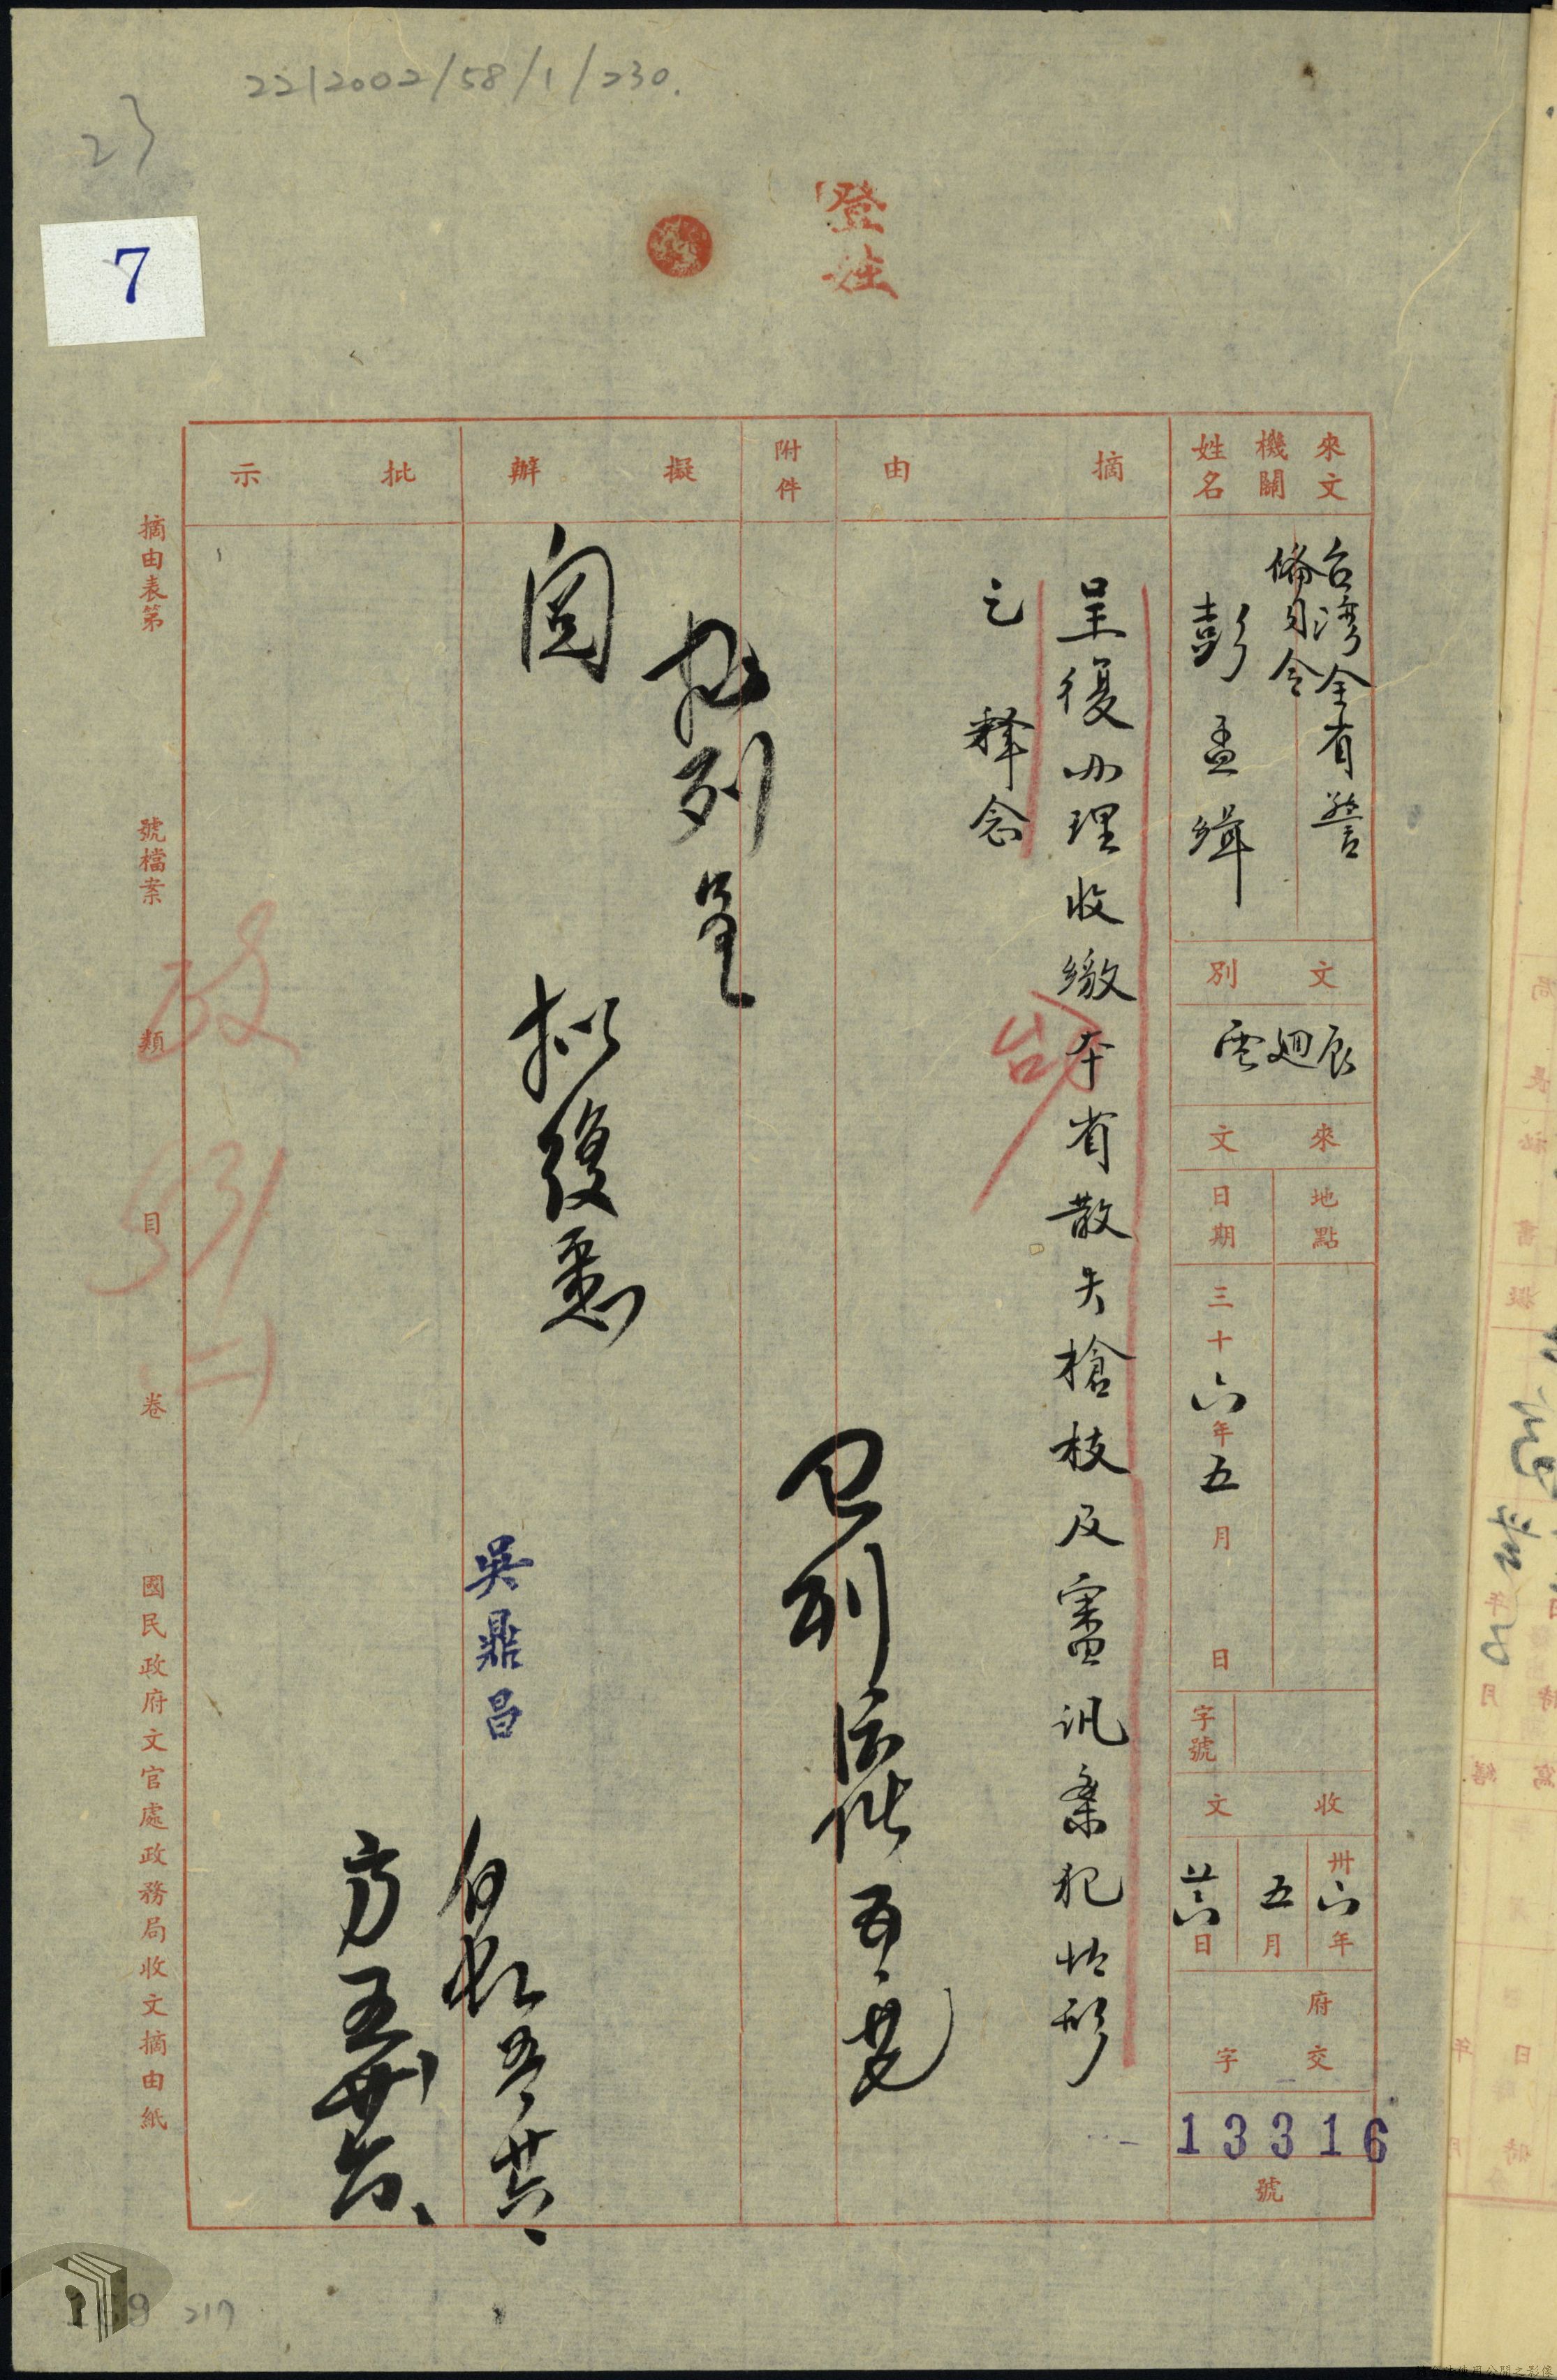 2212002/58/1/230.
23
7
登註
來文
機關
姓名
台湾全省警
備司令
彭孟緝
文別
辰迴
來文
地點
日期
三十六年五月 日
字號
收文
卅六年
五月
廿六日
府交字
13316
號
摘由
呈復办理收繳本省散失槍枝及審訊案犯情形
乞 释念
台
附件
擬辦
拟列呈
閱
拟復悉
吳鼎昌
批示
政
531
(二)
摘由表第 號檔案 類 目 卷 國民政府文官處政務局收文摘由紙
217